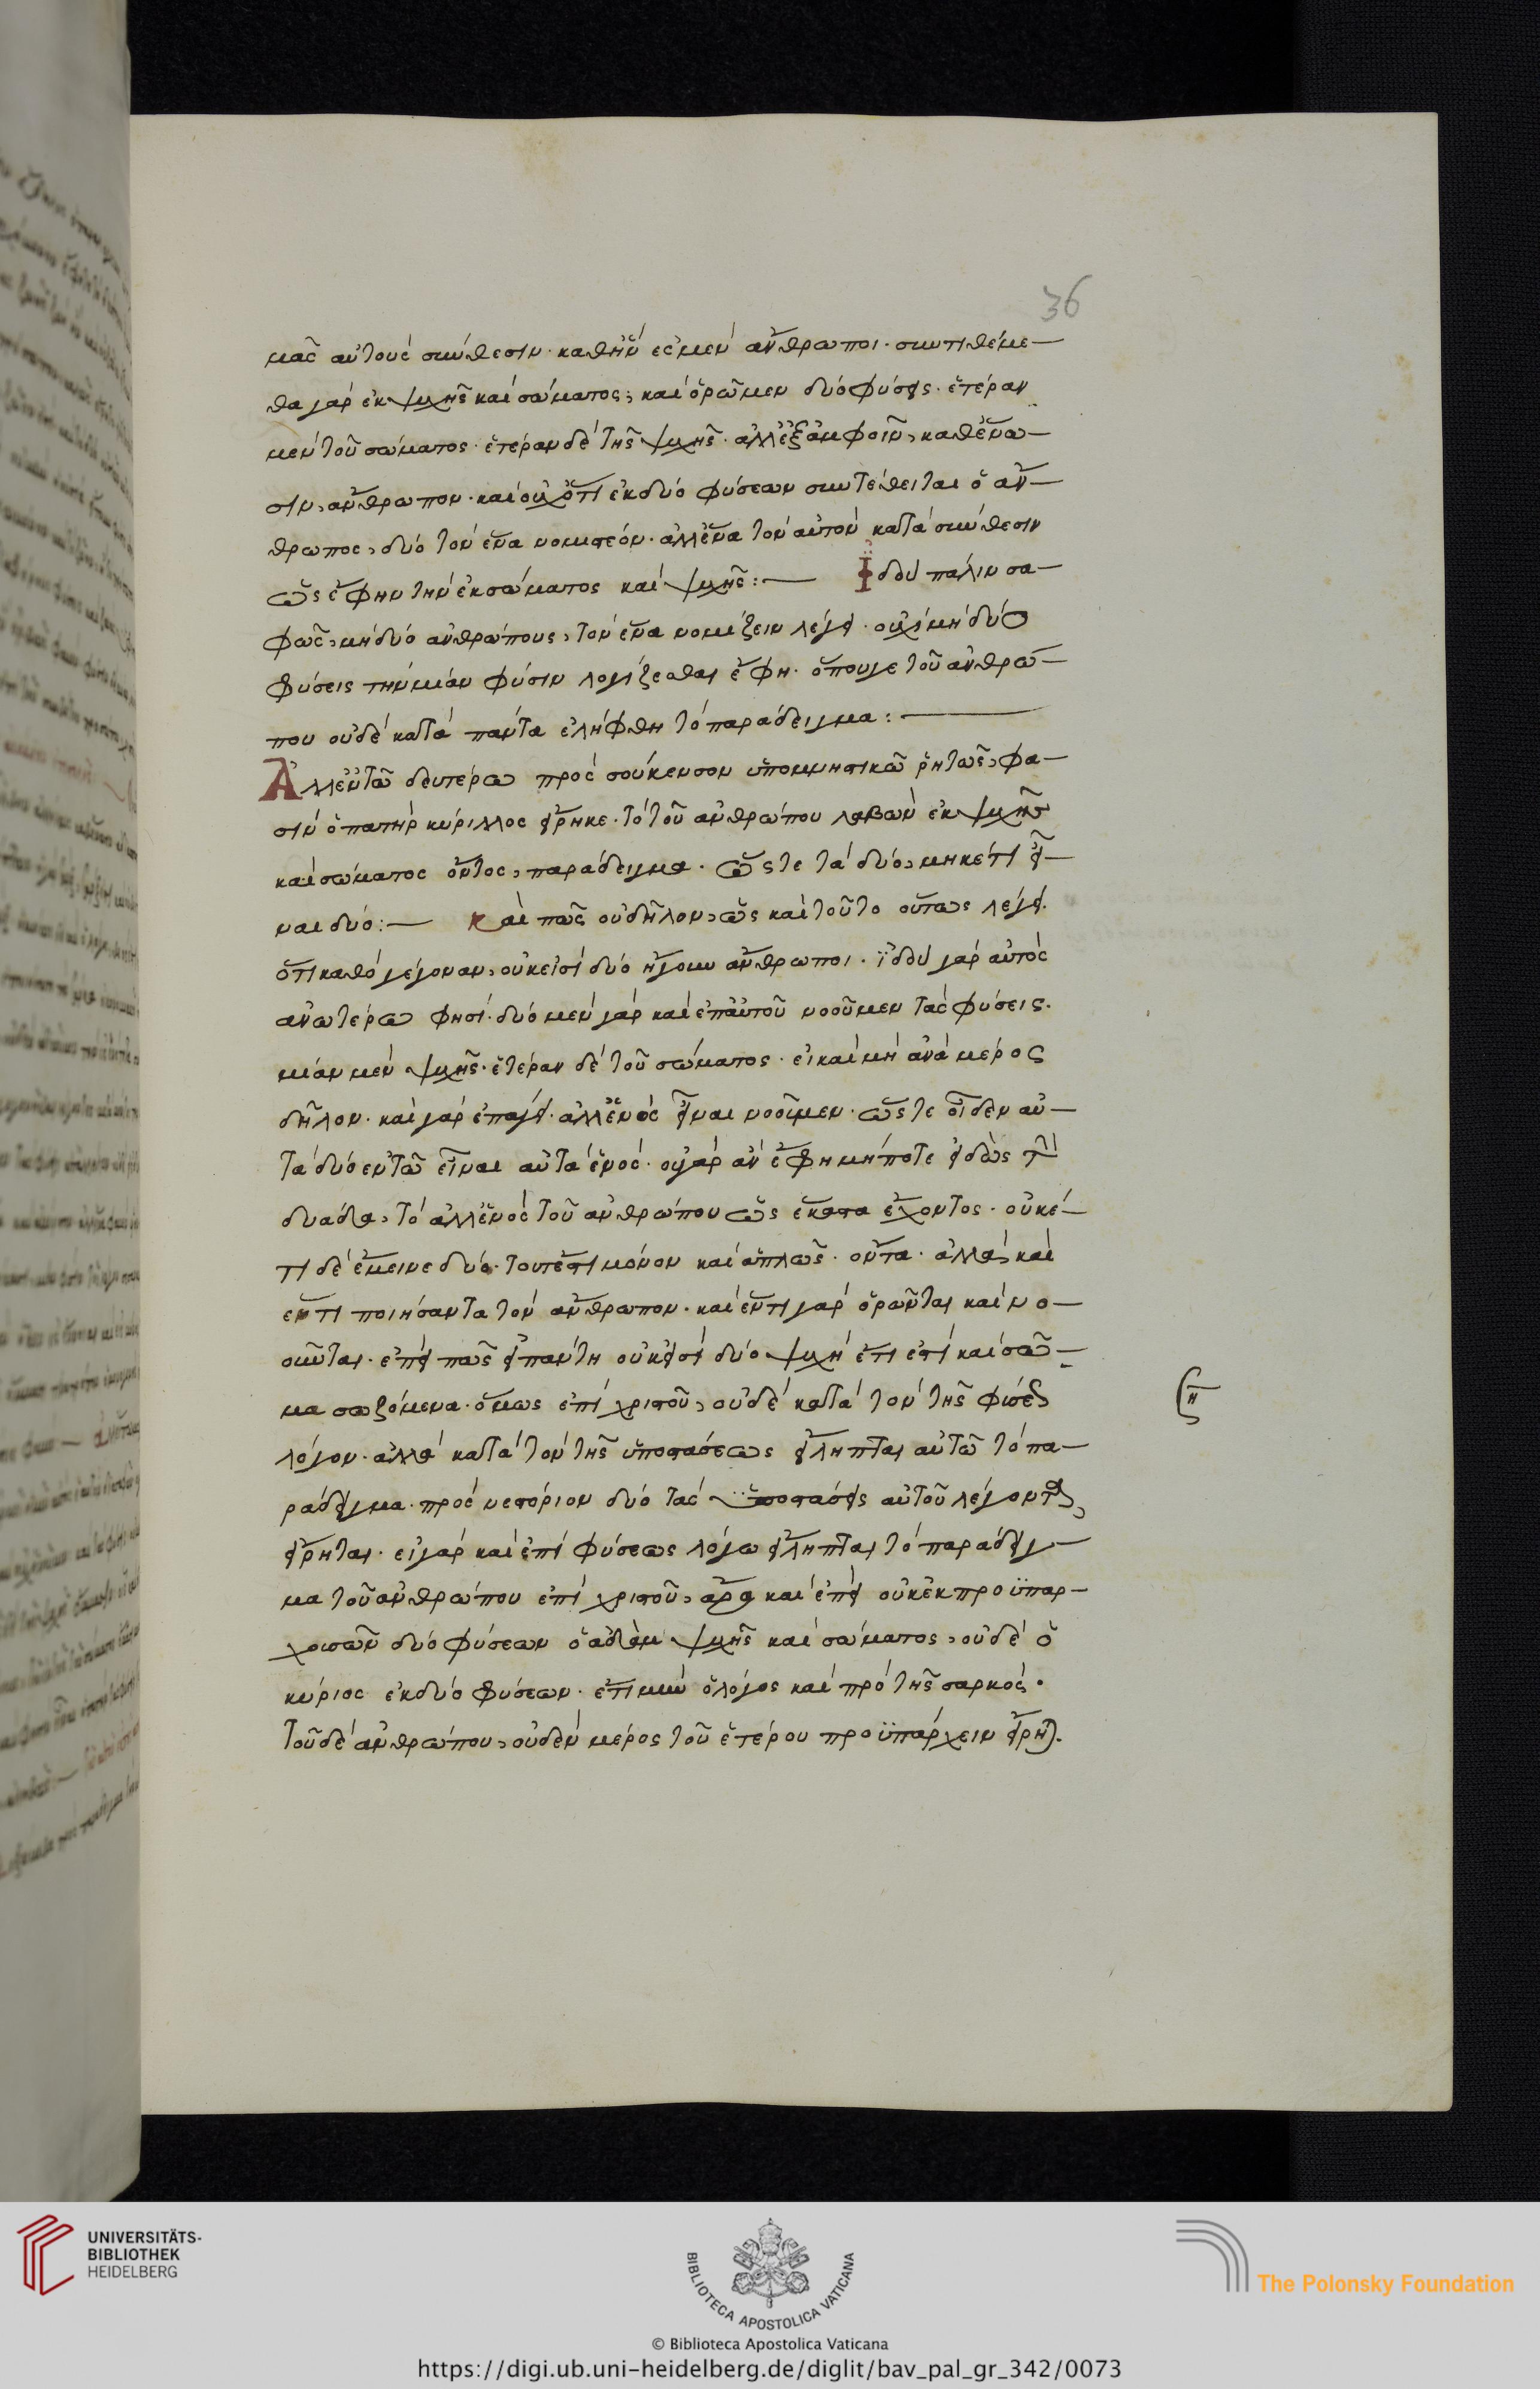 36
μᾶς αὐτοὺς σύνθεσιν· καθ' ἣν ἐσμὲν ἄνθρωποι· συντιθέμε—
θα γὰρ ἐκ ψυχῆς καὶ σώματος, καὶ ὁρῶμεν δύο φύσεις· ἑτέραν
μὲν τοῦ σώματος· ἑτέραν δὲ τῆς ψυχῆς· ἀλλ' ἐξ ἀμφοῖν, καθ' ἕνω—
σιν, ἄνθρωπον· καὶ οὐχ ὅτι ἐκ δύο φύσεων συντέθειται ὁ ἄν—
θρωπος, δύο τὸν ἕνα νομιστέον· ἀλλ' ἕνα τὸν αὐτὸν κατὰ σύνθεσιν
ὡς ἔφην τὴν ἐκ σώματος καὶ ψυχῆς :— Ἰδοὺ πάλιν σα—
φῶς, μὴ δύο ἀνθρώπους, τὸν ἕνα νομίζειν λέγει· οὐχὶ μὴ δύο
φύσεις τὴν μίαν φύσιν λογίζεσθαι ἔφη· ὅπουγε τοῦ ἀνθρώ—
που οὐδὲ κατὰ πάντα ἐλήφθη τὸ παράδειγμα :—
Ἀλλ' ἐν τῶ δευτέρω πρὸς σούκενσον ὑπομνηστικῶ ῥητῶς, φα—
σὶν ὁ πατὴρ κύριλλος εἴρηκε· τὸ τοῦ ἀνθρώπου λαβὼν ἐκ ψυχῆς
καὶ σώματος ὄντος, παράδειγμα· ὥςτε τὰ δύο, μηκέτι εἶ—
ναι δύο :— Καὶ πῶς οὐ δῆλον, ὡς καὶ τοῦτο οὕτως λέγει·
ὅτι καθὸ γέγοναν, οὐκ εἰσὶ δύο ἤγουν ἄνθρωποι· ἰδοὺ γὰρ αὐτὸς
ἀνωτέρω φησί· δύο μὲν γὰρ καὶ ἐπ' αὐτοῦ νοοῦμεν τὰς φύσεις·
μίαν μὲν ψυχῆς· ἑτέραν δὲ τοῦ σώματος· εἰ καὶ μὴ ἀνὰ μέρος
δῆλον· καὶ γὰρ ἐπάγει· ἀλλ' ἑνὸς εἶναι νοοῖμεν· ὥςτε οἶδεν αὐ—
τὰ δύο ἐν τῶ εἶναι αὐτὰ ἑνός· οὐ γὰρ ἂν ἔφη μήποτε εἰδὼς τὴν
δυάδα, τὸ ἀλλ' ἑνὸς τοῦ ἀνθρώπου ὡς ἕκαστα ἔχοντος· οὐκέ—
τι δὲ ἔμεινε δύο· τουτέστι μόνον καὶ ἁπλῶς· ὄντα· ἀλλὰ, καὶ
ἕν τι ποιήσαντα τὸν ἄνθρωπον· καὶ ἕν τι γὰρ ὁρῶνται καὶ νο—
οῦνται· ἐπεὶ πῶς εἰ πάντη οὐκ εἰσὶ δύο ψυχὴ ἔτι ἐστὶ καὶ σῶ—
μα σωζόμενα· ὅμως ἐπὶ χριστοῦ, οὐδὲ κατὰ τὸν τῆς φύσεως
λόγον· ἀλλὰ κατὰ τὸν τῆς ὑποστάσεως εἴληπται αὐτῶ τὸ πα—
ράδειγμα· πρὸς νεστόριον δύο τὰς ὑποστάσεις αὐτοῦ λέγοντα,
εἴρηται· εἰ γὰρ καὶ ἐπὶ φύσεως λόγω εἴληπται τὸ παράδειγ—
μα τοῦ ἀνθρώπου ἐπὶ χριστοῦ, ἄρα καὶ ἐπεὶ οὐκ ἐκ προϋπαρ—
χουσῶν δύο φύσεων ὁ ἀδὰμ ψυχῆς καὶ σώματος, οὐδὲ ὁ
κύριος ἐκ δύο φύσεων· ἔτι μὴν ὁ λόγος καὶ πρὸ τῆς σαρκός·
Τοῦ δὲ ἀνθρώπου, οὐδὲν μέρος τοῦ ἑτέρου προϋπάρχειν εἴρηται.
UNIVERSITÄTS-
BIBLIOTHEK
HEIDELBERG
BIBLIOTECA APOSTOLICA VATICANA
The Polonsky Foundation
© Biblioteca Apostolica Vaticana
https://digi.ub.uni-heidelberg.de/diglit/bav_pal_gr_342/0073